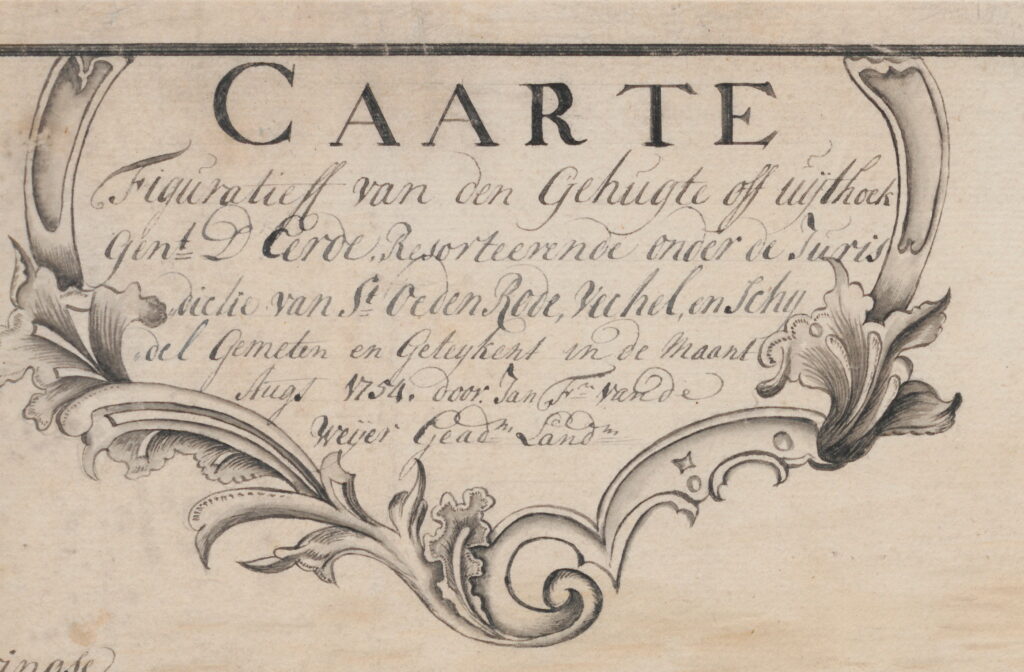 CAARTE
Figuratieff van den Gehugte off uijthoek
Gent. D'Eerde. Resorteerende onder de Juris
dictie van St. Oeden Rode, Vechel, en Schij
del Gemeten en Geteykent in de Maant
Augt 1754. door Jan Fr. van de
Weijer Geadm. Landm.